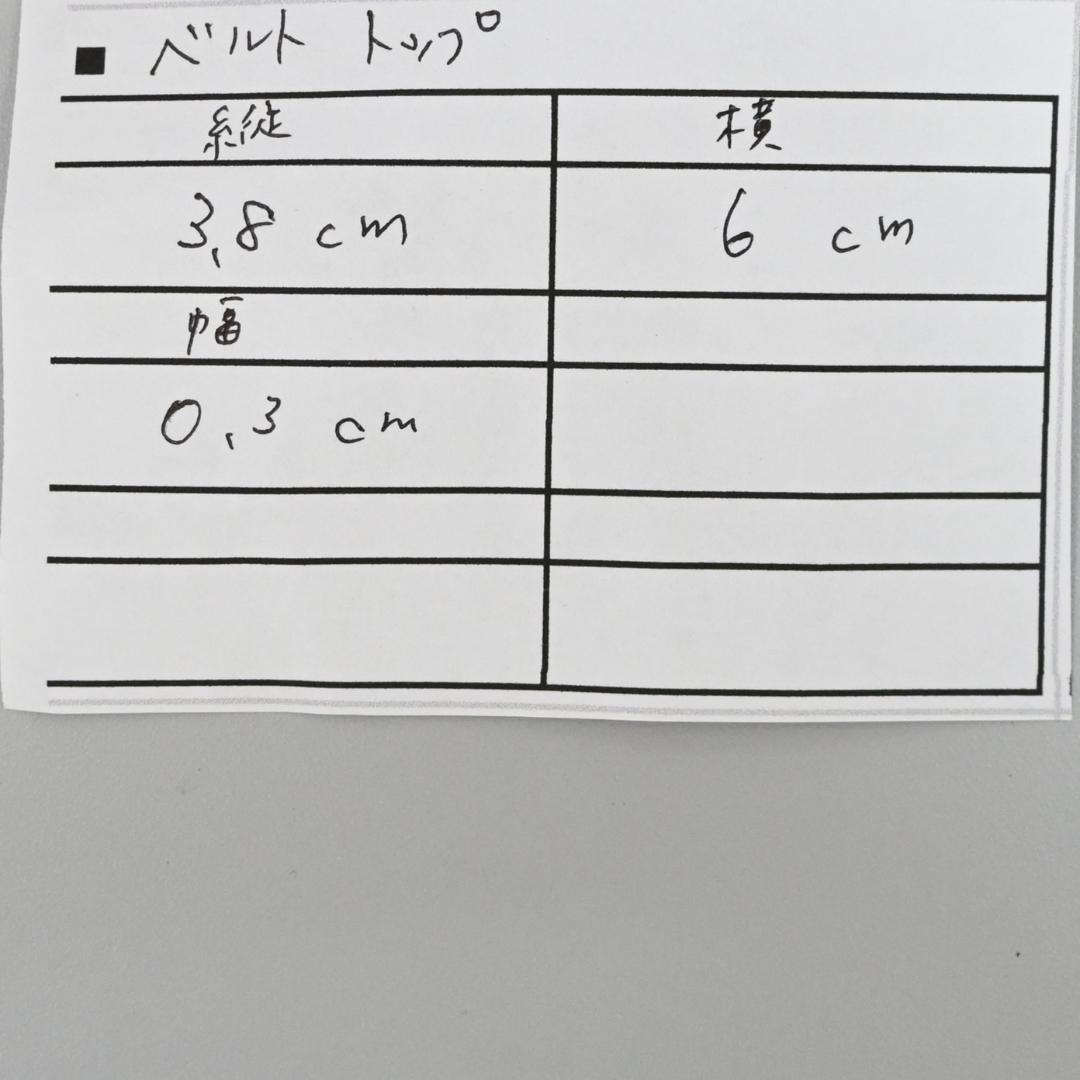 ■ ベルト トップ
縦 横
3.8 cm 6 cm
幅
0.3 cm